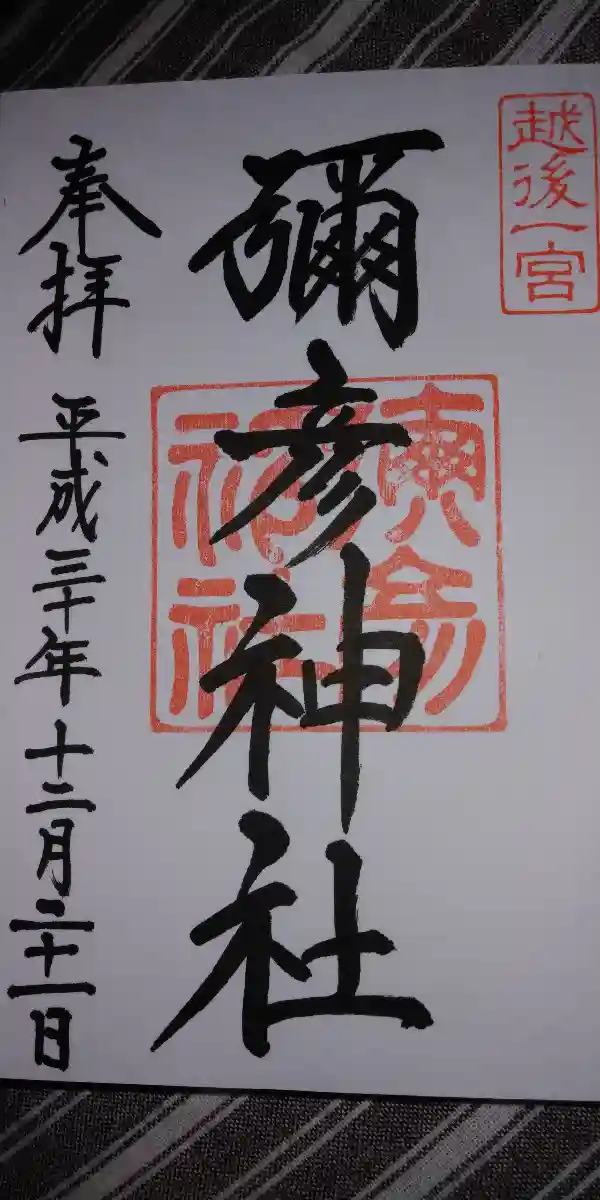 越後一宮
彌彦神社
彌彦神社
奉拝 平成三十年十二月二十一日